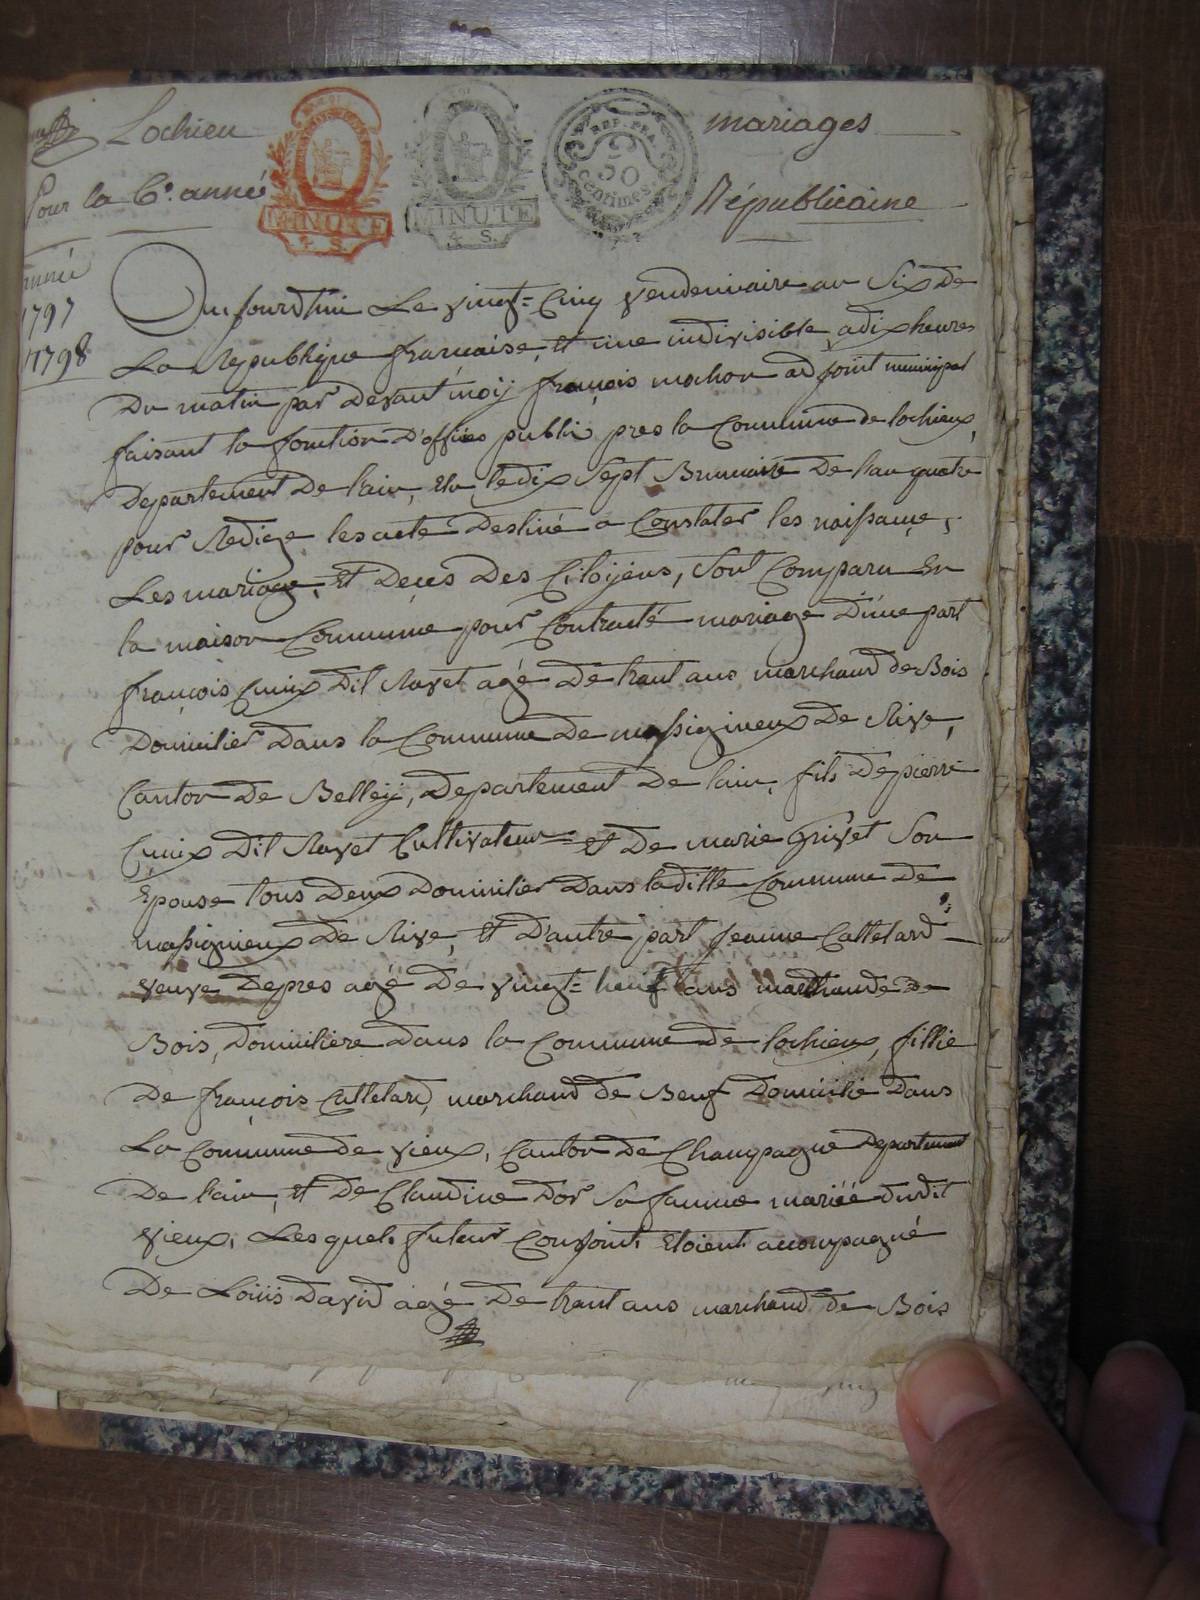 Lochieu
mariages
Pour la 6e. année
Républicaine
REP. FRA.
50
centimes
MINUTE
4 S.
MINUTE
4 S.
année
1797
1798
Aujourdhui Le vingt=Cinq vendemiaire an Six De
La Republique francaise, et une indivisible, adix heures
Du matin par Devant moij françois mochon adjoint municipal
faisant la fonction D'officies public pres la Commune de lochieux,
Departement De l'ain, Elu, le dix Sept Brumaire De l'an quatre
pour Redige les acte Destiné a Constater les naissance,
Les mariage, Et Deces Des Citoijens, Sont Comparu En
la maison Commune pour Contracté mariage D'une part
françois Cunix Dit Ravet agé De trant ans marchand de Bois
Domicilier Dans la Commune De massigneux De Rive,
Canton De Belleÿ, Departement De l'ain, fils De pierre
Cunix Dit Ravet Cultivateur et De marie Grivet Son
Epouse tous Deux Domicilier Dans la ditte Commune De
massignieux De Rive, Et D'autre part Jeanne Cattelard
veuve Depres agé De vingt=heuit ans marchande De
Bois, Domiciliere Dans la Commune De lochieux, fillie
De françois Cattelard, marchand De Beuf Domicilié Dans
La Commune De vieux, Canton De Champagne Departement
De l'ain, et De Claudine Dor Sa famme mariéé Dudit
vieux, Les quels futeur Conjoint Etoient accompagné
De Loüis David agé De trant ans marchand De Bois